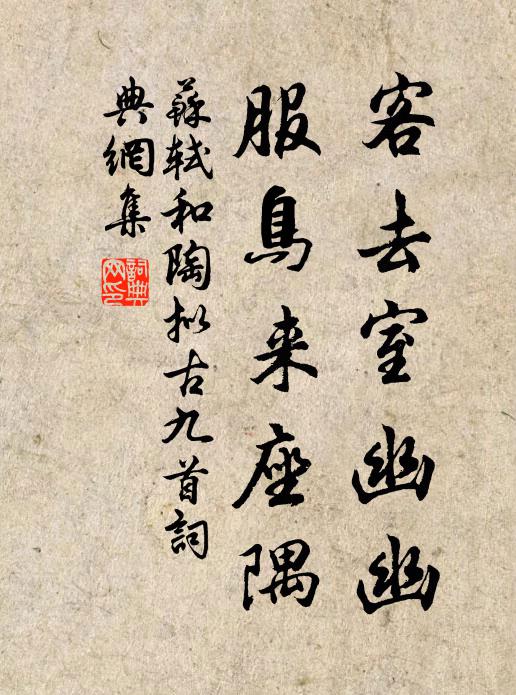 客去室幽幽
服鳥来座隅
蘇軾和陶拟古九首詞
典網集
詞典
网印